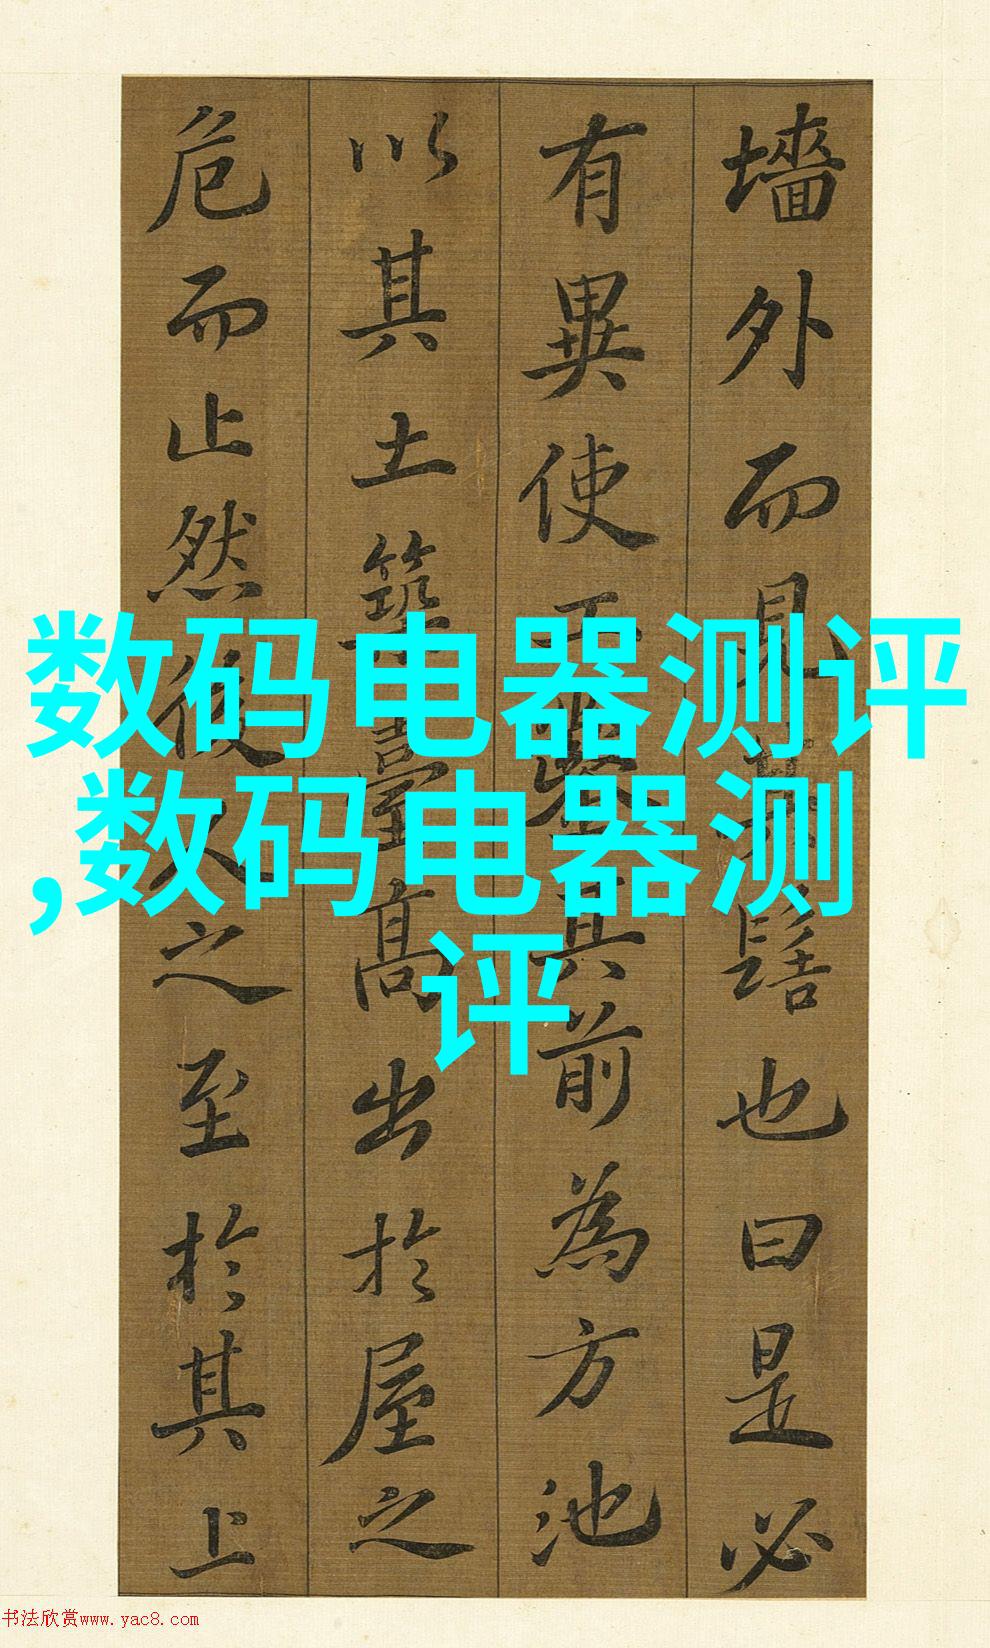 墻外而見其髻也曰是必
有異使工鑿其前為方池
以其土築臺高出於屋之
危而止然後人之至於其上
数码电器测评
,数码电器测
评
书法欣赏www.yac8.com